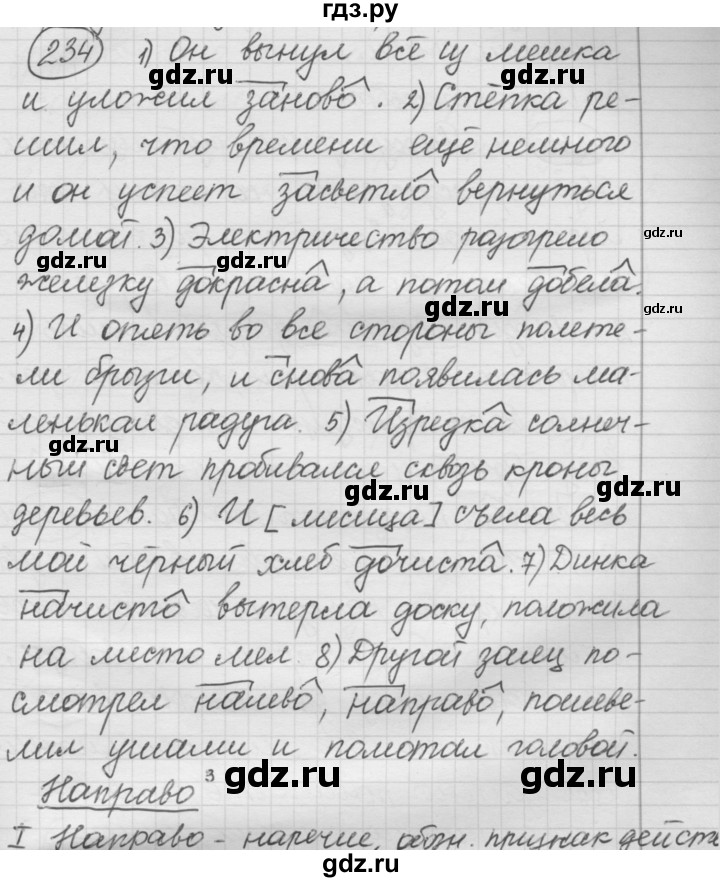 гдз.ру
234 1) Он вынул всё из мешка
gdz.ru gdz.ru
и уложил заново. 2) Стёпка ре-
gdz.ru gdz.ru
шил, что времени ещё немного
и он успеет засветло вернуться
домой. 3) Электричество разогрело
gdz.ru gdz.ru gdz.ru
железку докрасна, а потом добела.
gdz.ru gdz.ru
4) И опять во все стороны полете-
ли брызги, и снова появилась ма-
ленькая радуга. 5) Изредка солнеч-
gdz.ru
ный свет пробивался сквозь кроны
gdz.ru gdz.ru
деревьев. 6) И [лисица] съела весь
мой чёрный хлеб дочиста. 7) Динка
начисто вытерла доску, положила
на место мел. 8) Другой заяц по-
смотрел налево, направо, пошеве-
лил ушами и помотал головой.
Направо³
gdz.ru gdz.ru
I Направо - наречие, обозн. признак действ
гдз.ру